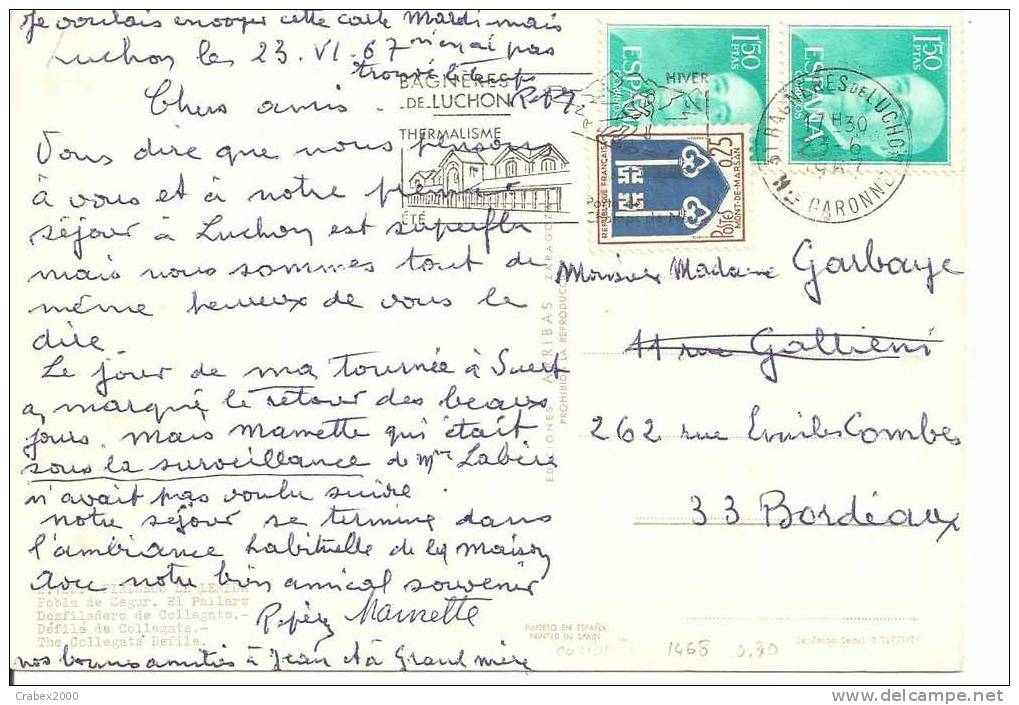 Je voulais envoyer cette carte Mardi mais
n'en ai pas
trouvé le temps
Luchon les 23. VI. 67
Chers amis.
Vous dire que nous pensons
à vous et à notre premier
séjour à Luchon est superflu
mais nous sommes tout de
même heureux de vous le
dire
Le jour de ma tournée à
a, marqué le retour des beaux
jours. Mais Mamette qui était
sous la surveillance de Mme Labère
n'avait pas voulu suivre.
Notre séjour se termine dans
l'ambiance habituelle de la maison
Avec notre bien amical souvenir
Mamette
nos bonnes amitiés à Jean et à Grand mère
BAGNÈRES
-DE-LUCHON
THERMALISME
ÉTÉ
HIVER
1'50
PTAS
ESPAÑA
CORREOS
1'50
PTAS
ESPAÑA
CORREOS
BAGNERES DE LUCHON
17H30
23-6
1967
HTE GARONNE
REPUBLIQUE FRANÇAISE
0,25
MONT-DE-MARSAN
POSTES
Monsieur Madame Garbaye
11 rue Gallieni
262 rue Emiles Combes
33 Bordeaux
EDICIONES ARRIBAS ZARAGOZA
PROHIBIDA LA REPRODUCCION
PIRINEO DE LERIDA
Pobla de Segur. El Pallars
Desfiladero de Collegats.-
Défilé de Collegats.-
The Collegats Defile.
IMPRESO EN ESPAÑA
PRINTED IN SPAIN
1468 0.80
Depósito Legal
Crabex2000
www.delcampe.net